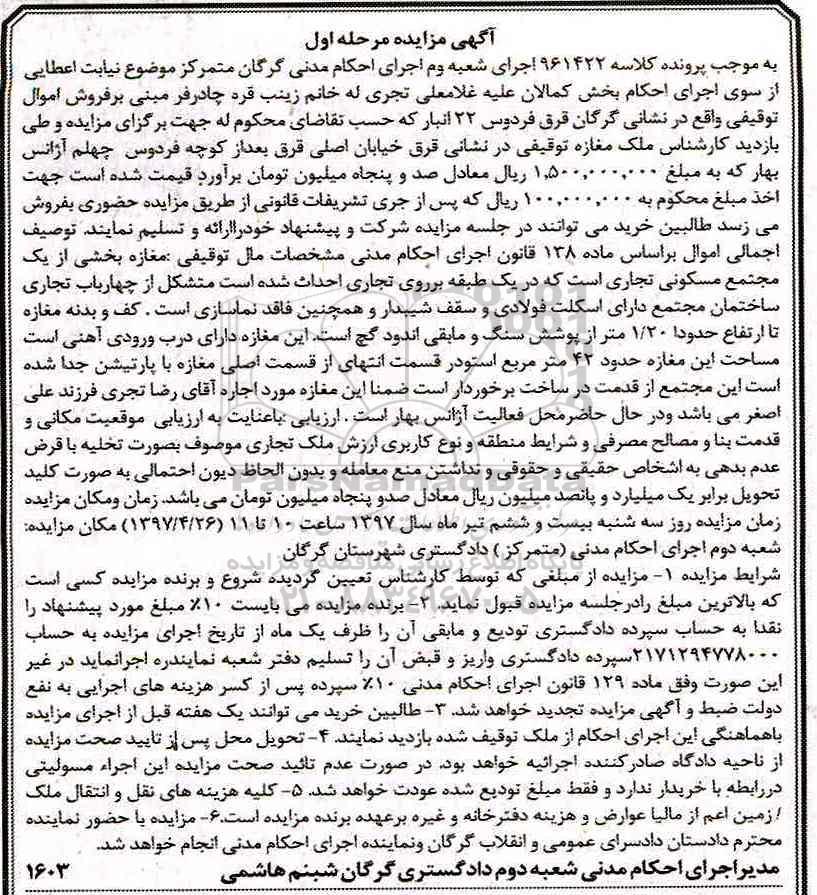 آگهی مزایده مرحله اول
به موجب پرونده کلاسه ۹۶۱۴۲۲ اجرای شعبه وم اجرای احکام مدنی گرگان متمرکز موضوع نیابت اعطایی
از سوی اجرای احکام بخش کمالان علیه غلامعلی تجری له خانم زینب قره چادرفر مبنی برفروش اموال
توقیفی واقع در نشانی گرگان قرق فردوس ۲۲ انبار که حسب تقاضای محکوم له جهت برگزای مزایده و طی
بازدید کارشناس ملک مغازه توقیفی در نشانی قرق خیابان اصلی قرق بعداز کوچه فردوس چهلم آژانس
بهار که به مبلغ ۱,۵۰۰,۰۰۰,۰۰۰ ریال معادل صد و پنجاه میلیون تومان برآورد قیمت شده است جهت
اخذ مبلغ محکوم به ۱۰۰,۰۰۰,۰۰۰ ریال که پس از جری تشریفات قانونی از طریق مزایده حضوری بفروش
می رسد طالبین خرید می توانند در جلسه مزایده شرکت و پیشنهاد خودراارائه و تسلیم نمایند. توصیف
اجمالی اموال براساس ماده ۱۳۸ قانون اجرای احکام مدنی مشخصات مال توقیفی :مغازه بخشی از یک
مجتمع مسکونی تجاری است که در یک طبقه برروی تجاری احداث شده است متشکل از چهارباب تجاری
ساختمان مجتمع دارای اسکلت فولادی و سقف شیبدار و همچنین فاقد نماسازی است . کف و بدنه مغازه
تا ارتفاع حدودا ۱/۲۰ متر از پوشش سنگ و مابقی اندود گچ است. این مغازه دارای درب ورودی آهنی است
مساحت این مغازه حدود ۴۲ متر مربع استودر قسمت انتهای از قسمت اصلی مغازه با پارتیشن جدا شده
است این مجتمع از قدمت در ساخت برخوردار است ضمنا این مغازه مورد اجاره آقای رضا تجری فرزند علی
اصغر می باشد ودر حال حاضرمحل فعالیت آژانس بهار است . ارزیابی :باعنایت به ارزیابی موقعیت مکانی و
قدمت بنا و مصالح مصرفی و شرایط منطقه و نوع کاربری ارزش ملک تجاری موصوف بصورت تخلیه با قرض
عدم بدهی به اشخاص حقیقی و حقوقی و نداشتن منع معامله و بدون الحاظ دیون احتمالی به صورت کلید
تحویل برابر یک میلیارد و پانصد میلیون ریال معادل صدو پنجاه میلیون تومان می باشد. زمان ومکان مزایده
زمان مزایده روز سه شنبه بیست و ششم تیر ماه سال ۱۳۹۷ ساعت ۱۰ تا ۱۱ (۱۳۹۷/۴/۲۶) مکان مزایده:
شعبه دوم اجرای احکام مدنی (متمرکز ) دادگستری شهرستان گرگان
شرایط مزایده ۱- مزایده از مبلغی که توسط کارشناس تعیین گردیده شروع و برنده مزایده کسی است
که بالاترین مبلغ رادرجلسه مزایده قبول نماید. ۲- برنده مزایده می بایست ۱۰٪ مبلغ مورد پیشنهاد را
نقدا به حساب سپرده دادگستری تودیع و مابقی آن را ظرف یک ماه از تاریخ اجرای مزایده به حساب
۲۱۷۱۲۹۴۷۷۸۰۰۰سپرده دادگستری واریز و قبض آن را تسلیم دفتر شعبه نماینده‌ره اجرانماید در غیر
این صورت وفق ماده ۱۲۹ قانون اجرای احکام مدنی ۱۰٪ سپرده پس از کسر هزینه های اجرایی به نفع
دولت ضبط و آگهی مزایده تجدید خواهد شد. ۳- طالبین خرید می توانند یک هفته قبل از اجرای مزایده
باهماهنگی این اجرای احکام از ملک توقیف شده بازدید نمایند. ۴- تحویل محل پس از تایید صحت مزایده
از ناحیه دادگاه صادرکننده اجرائیه خواهد بود. در صورت عدم تائید صحت مزایده این اجراء مسولیتی
دررابطه با خریدار ندارد و فقط مبلغ تودیع شده عودت خواهد شد. ۵- کلیه هزینه های نقل و انتقال ملک
/ زمین اعم از مالیا عوارض و هزینه دفترخانه و غیره برعهده برنده مزایده است.۶- مزایده با حضور نماینده
محترم دادستان دادسرای عمومی و انقلاب گرگان ونماینده اجرای احکام مدنی انجام خواهد شد.
مدیراجرای احکام مدنی شعبه دوم دادگستری گرگان شبنم هاشمی
۱۶۰۳
ParsNamadData
پایگاه اطلاع رسانی مناقصه و مزایده
۰۲۱-۸۸۳۴۹۶۷۰-۵